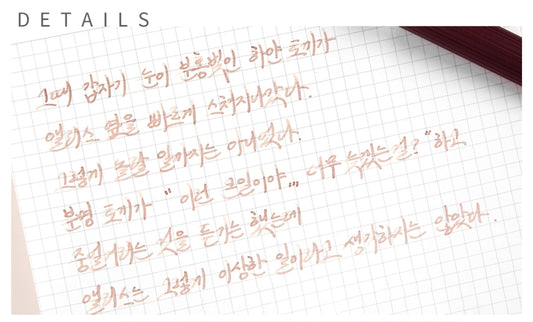 DETAILS
그때 갑자기 눈이 분홍빛인 하얀 토끼가
앨리스 옆을 빠르게 스쳐지나갔다.
그렇게 놀랄 일까지는 아니었다.
분명 토끼가 "이런 큰일이야,,, 너무 늦겠는걸?"하고
중얼거리는 것을 듣기는 했는데
앨리스는 그렇게 이상한 일이라고 생각하지는 않았다.